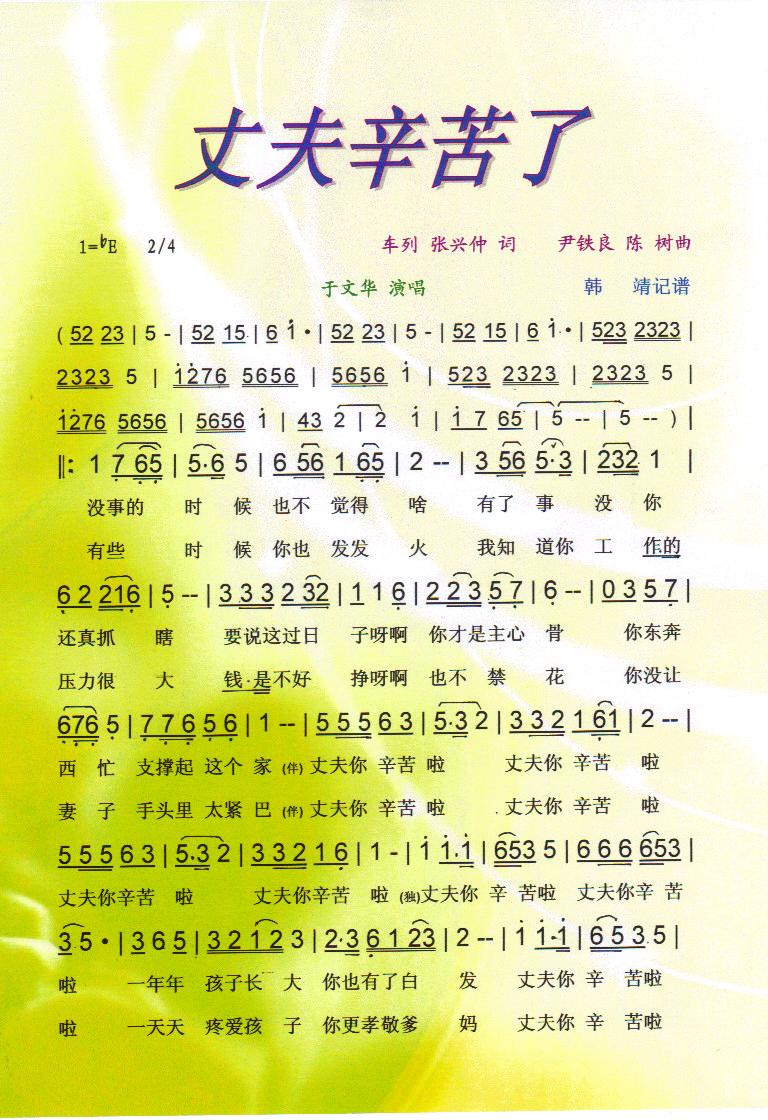 丈夫辛苦了
1=♭E 2/4 车列 张兴仲 词 尹铁良 陈 树曲
于文华 演唱 韩 靖记谱
( 52 23 | 5 - | 52 15 | 6 1̇ • | 52 23 | 5 - | 52 15 | 6 1̇ • | 523 2323 |
2323 5 | 1̇276 5656 | 5656 1̇ | 523 2323 | 2323 5 |
1̇276 5656 | 5656 1̇ | 43 2 | 2 1̇ | 1̇ 7 65 | 5 -- | 5 -- ) |
‖: 1 7 65 | 5·6 5 | 6 56 1 65 | 2 -- | 3 56 5·3 | 232 1 |
没事的 时 候 也不 觉得 啥 有了 事 没 你
有些 时 候 你也 发发 火 我知 道你 工 作的
6 2 216 | 5 -- | 3 3 3 2 32 | 1 1 6 | 2 2 3 5 7 | 6 -- | 0 3 5 7 |
还真抓 瞎 要说这过日 子呀啊 你才是主心 骨 你东奔
压力很 大 钱·是不好 挣呀啊 也不 禁 花 你没让
676 5 | 7 7 6 5 6 | 1 -- | 5 5 5 6 3 | 5·3 2 | 3 3 2 1 61 | 2 -- |
西 忙 支撑起 这个 家 (伴) 丈夫你 辛苦 啦 丈夫你 辛苦 啦
妻 子 手头里 太紧 巴 (伴) 丈夫你 辛苦 啦 丈夫你 辛苦 啦
5 5 5 6 3 | 5.3 2 | 3 3 2 1 6 | 1 - | 1̇ 1̇·1̇ | 653 5 | 6 6 6 653 |
丈夫你辛苦 啦 丈夫你辛苦 啦 (独)丈夫你 辛 苦啦 丈夫你辛 苦
3 5 • | 3 6 5 | 3 2 1 2 3 | 2·3 6 1 23 | 2 -- | 1̇ 1̇·1̇ | 6 5 3 5 |
啦 一年年 孩子长 大 你也有了白 发 丈夫你 辛 苦啦
啦 一天天 疼爱孩 子 你更孝敬爹 妈 丈夫你 辛 苦啦